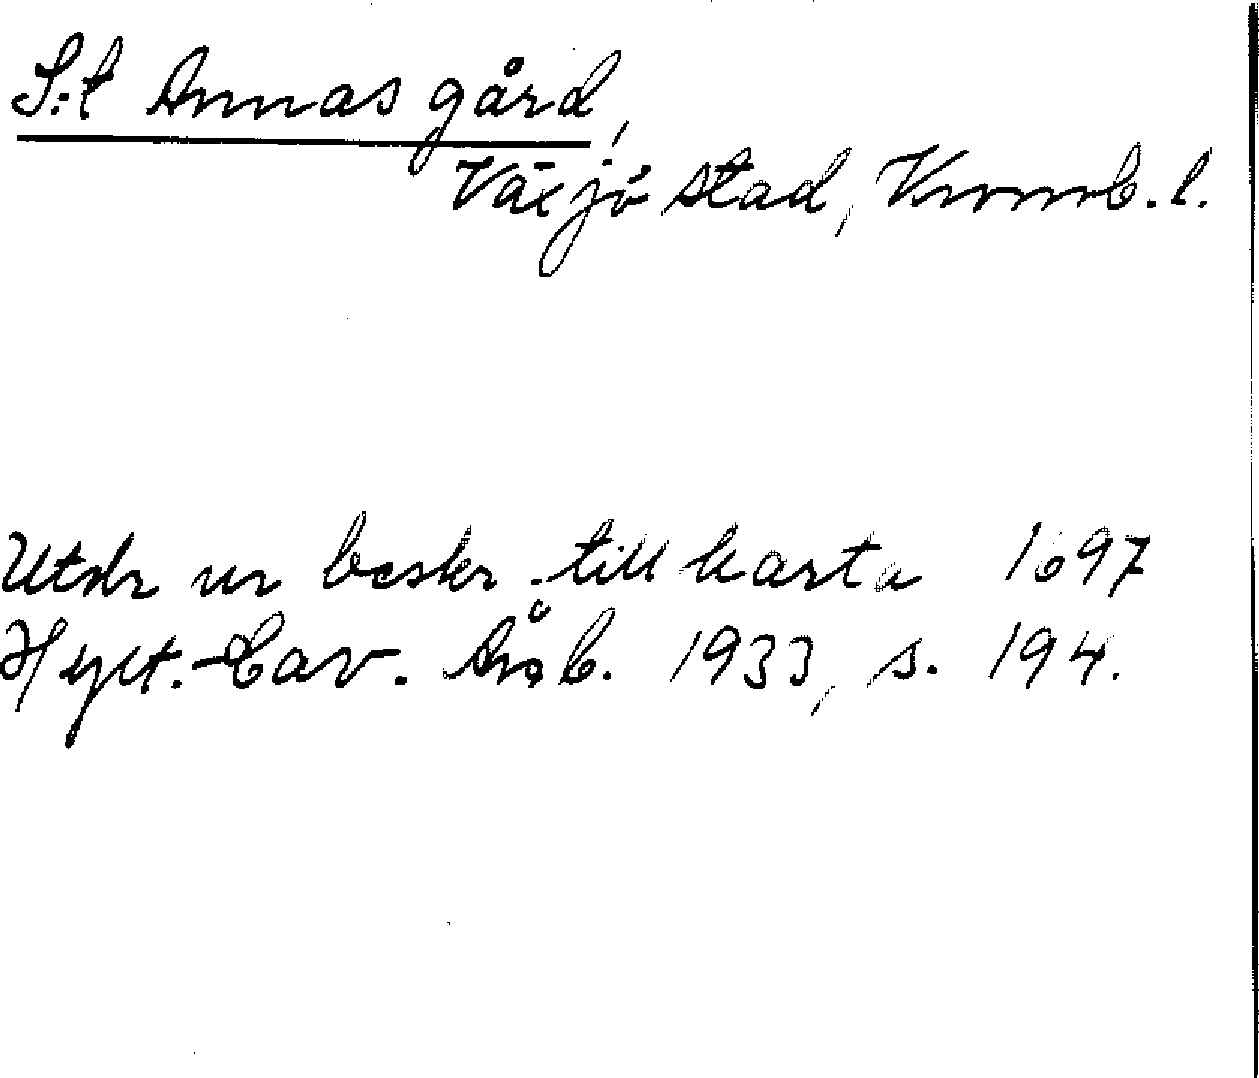 S:t Annas gård,
Växjö stad, Kronob. l.
Utdr ur beskr. till karta 1697
Hylt.-Cav. Årsb. 1933, s. 194.